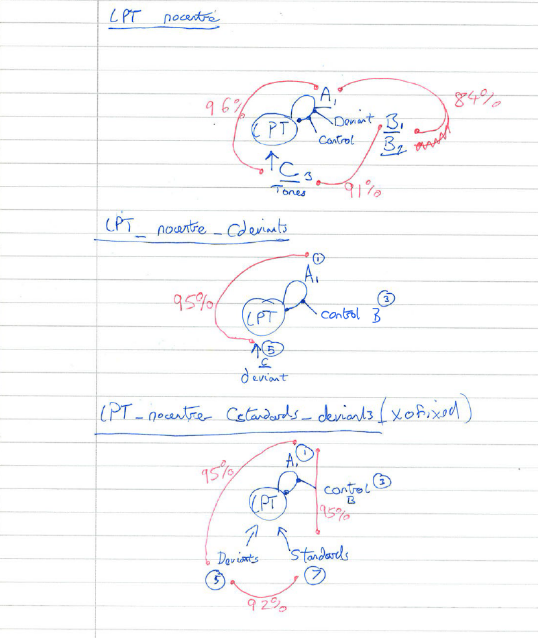 LPT nocentre
A1
96%
84%
LPT
Deviant
Control
B1
B2
C 3
Tones
91%
LPT_nocentre_Cdeviants
1
A1
95%
LPT
control B 3
5
C
deviant
LPT_nocentre Cstandards_deviants (xofixed)
1
95%
A1
control 3
B
LPT
95%
Deviants
Standards
5
7
92%